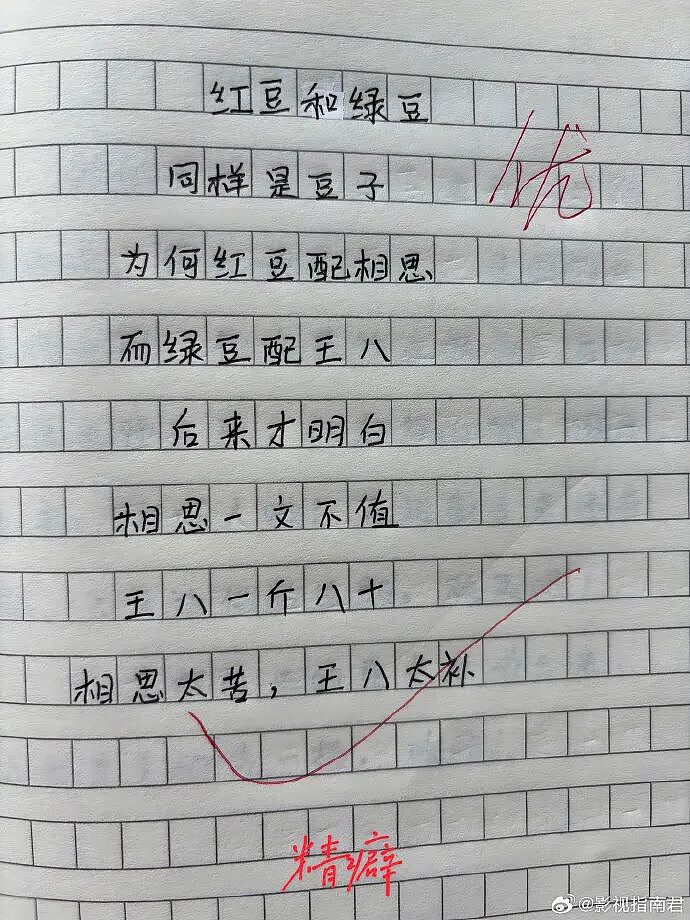 红豆和绿豆
优
同样是豆子
为何红豆配相思
而绿豆配王八
后来才明白
相思一文不值
王八一斤八十
相思太苦，王八太补
精癖
@影视指南君